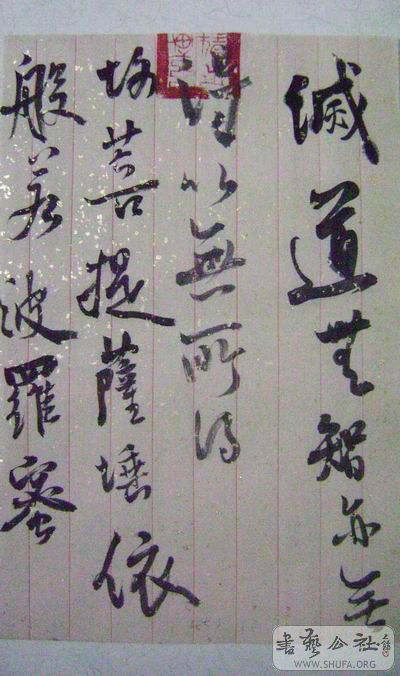 滅道無智亦無
得以無所得
故菩提薩埵依
般若波羅蜜
書藝公社
WWW.SHUFA.ORG